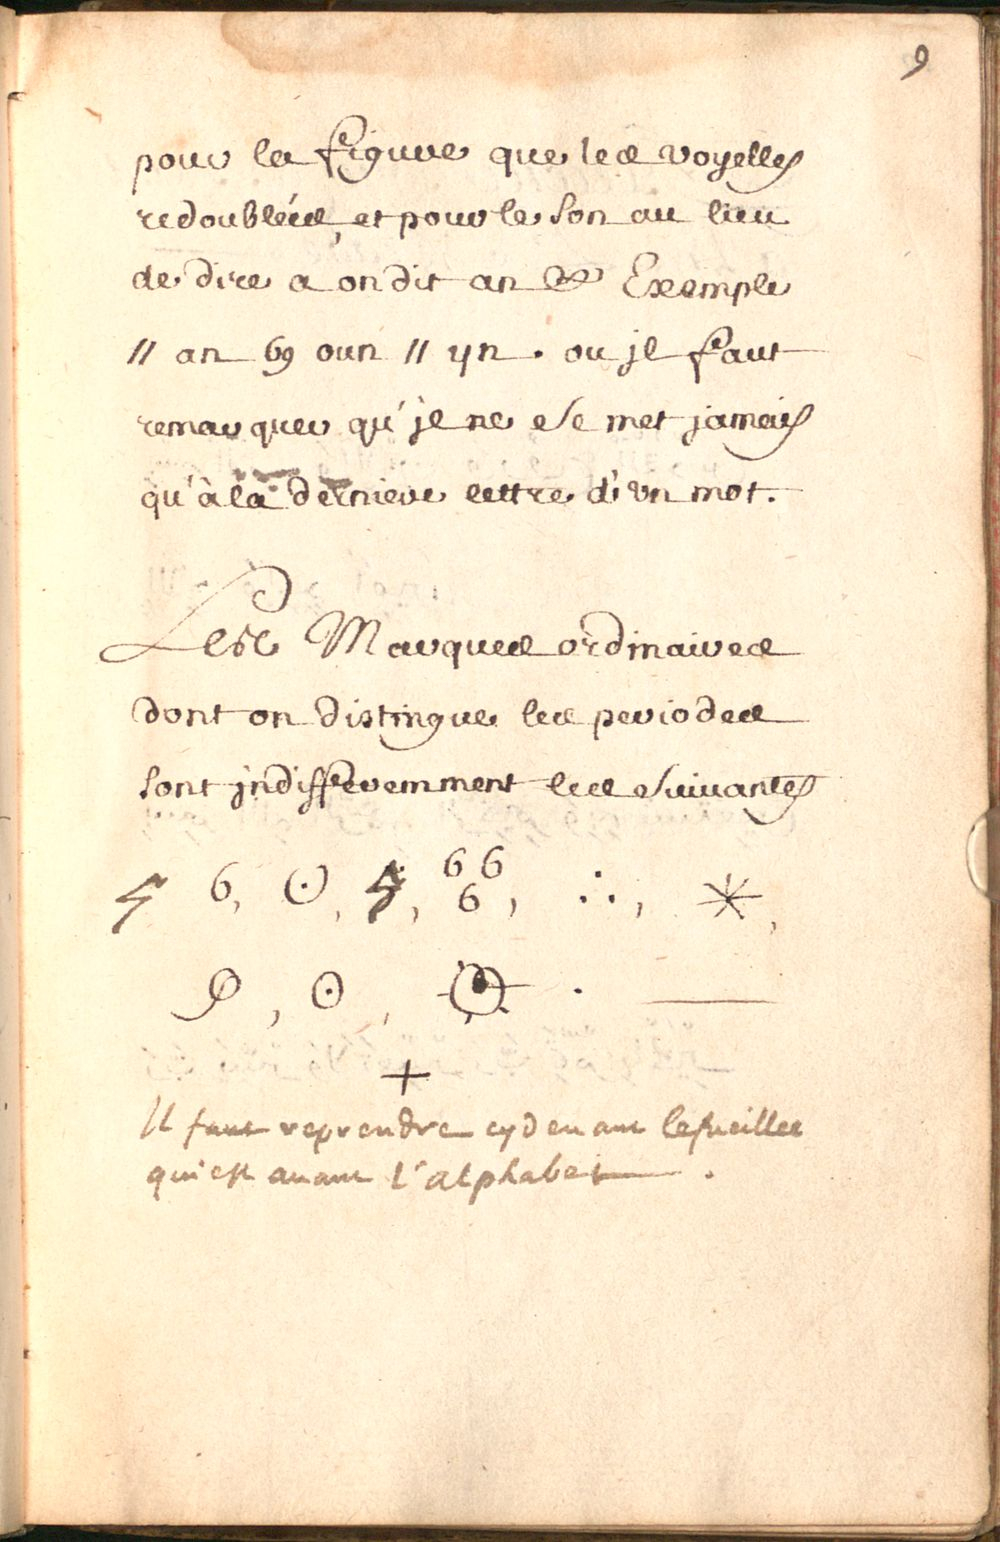 9
pour la figure que les voyelles
redoublées, et pour le son au lieu
de dire a on dit an & Exemple
// an 69 oun // yn . ou jl faut
remarquer qu'jl ne se met jamais
qu'à la derniere lettre d'vn mot.
Les Marques ordinaires
dont on distingue les periodes
sont jndifferemment les suiuantes
+
Il faut reprendre cydeuant lesueilles
qui est auant l'alphabet .